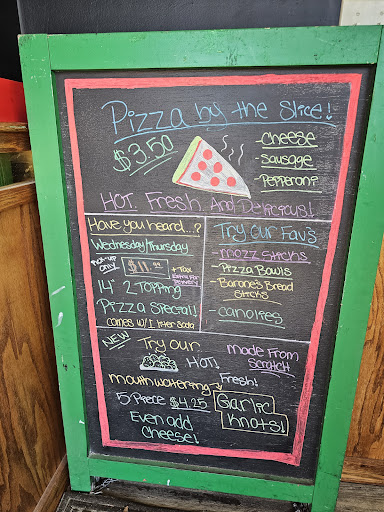 Pizza by the Slice!
$3.50
Cheese
Sausage
Pepperoni
HOT, Fresh, And Delicious!
Have you heard...?
Wednesday/Thursday
Pick-up only $11.99 + Tax
Extra For Delivery
14" 2 Topping
Pizza Special!
comes w/ 1 liter soda
Try Our Fav's
mozz sticks
Pizza Bowls
Barone's Bread
Sticks
canolies
NEW
Try Our
HOT!
made From
Scratch
mouthwatering
Fresh!
5 Piece $4.25
Garlic
Knots!
Even add
Cheese!